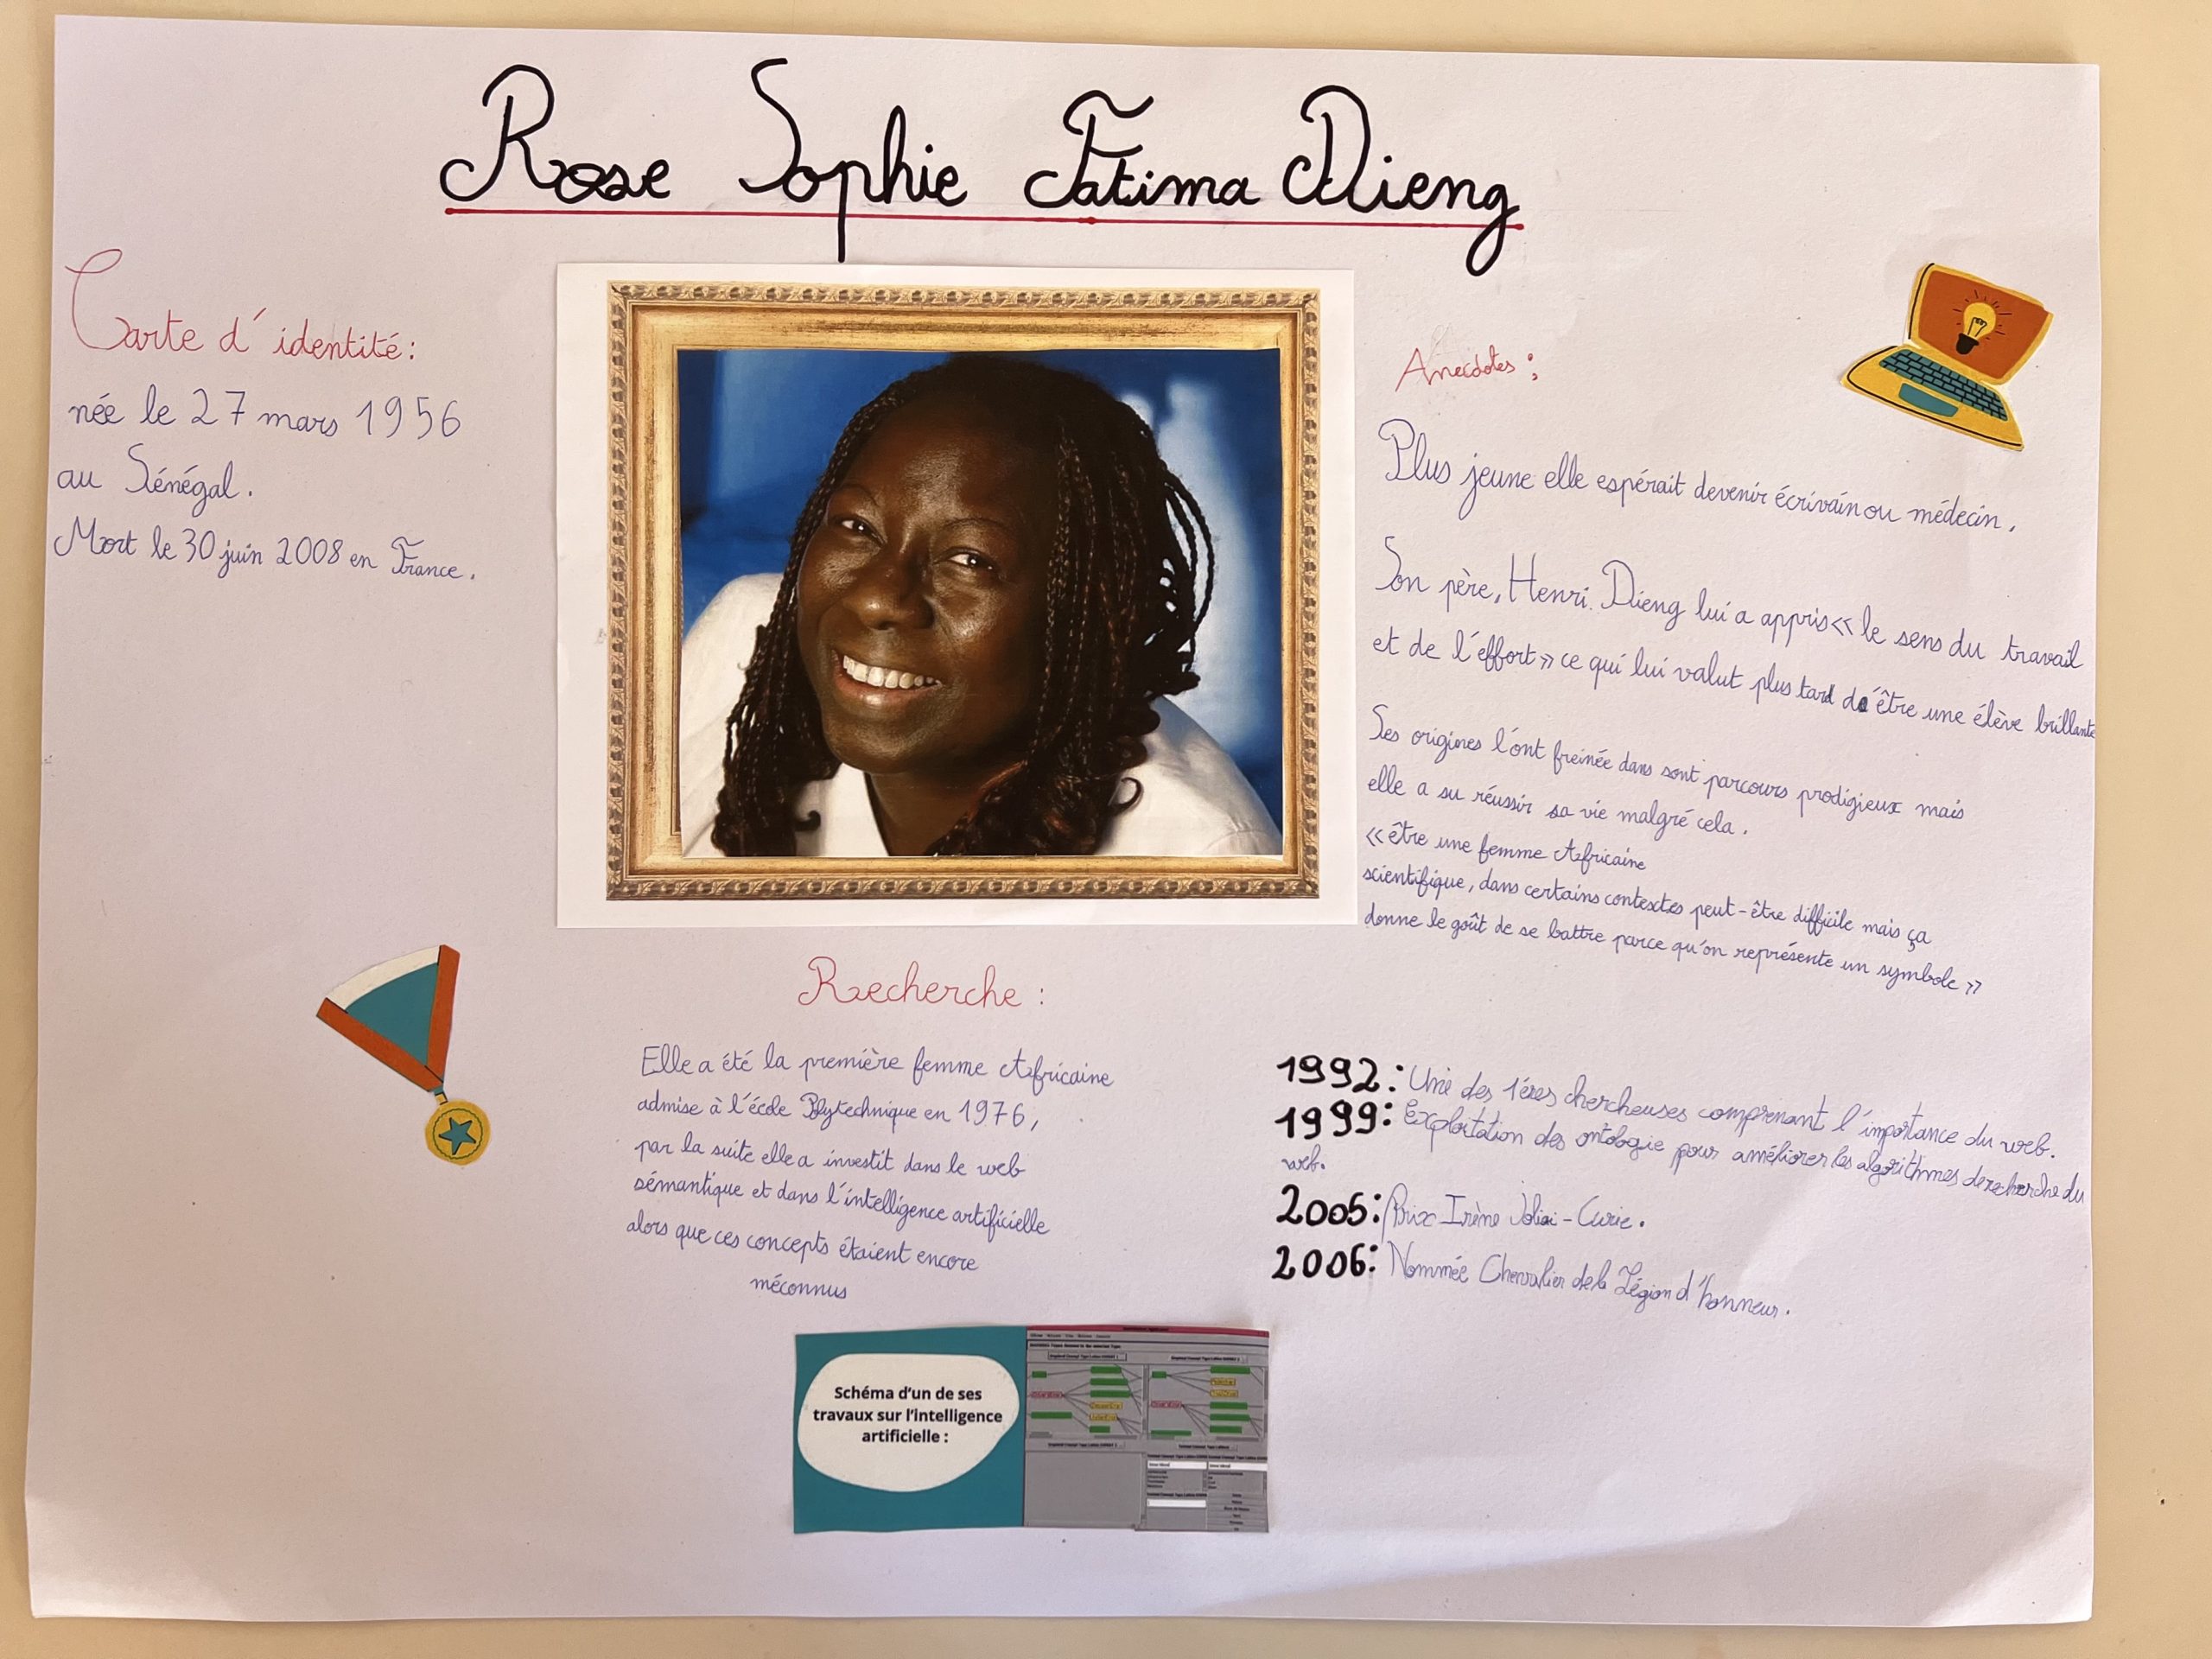 Rose Sophie Fatima Dieng
Carte d'identité:
née le 27 mars 1956
au Sénégal.
Mort le 30 juin 2008 en France.
Anecdotes:
Plus jeune elle espérait devenir écrivain ou médecin.
Son père, Henri Dieng lui a appris « le sens du travail
et de l'effort » ce qui lui valut plus tard d'être une élève brillante
Ses origines l'ont freinée dans sont parcours prodigieux mais
elle a su réussir sa vie malgré cela.
« être une femme Africaine
scientifique, dans certains contextes peut-être difficile mais ça
donne le goût de se battre parce qu'on représente un symbole »
Recherche :
Elle a été la première femme Africaine
admise à l'école Polytechnique en 1976,
par la suite elle a investit dans le web
sémantique et dans l'intelligence artificielle
alors que ces concepts étaient encore
méconnus
1992: Une des 1ères chercheuses comprenant l'importance du web.
1999: Exploitation des ontologie pour améliorer les algorithmes de recherche du
web.
2005: Prix Irène Joliot-Curie.
2006: Nommée Chevalier de la Légion d'honneur.
Schéma d'un de ses
travaux sur l'intelligence
artificielle :